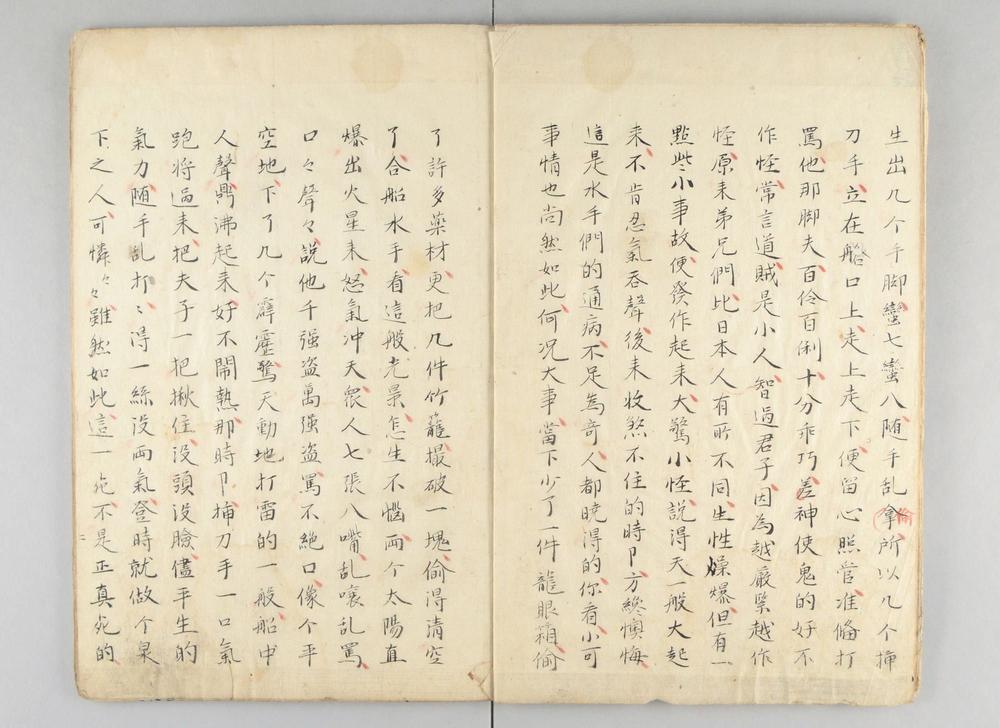 生出几个手脚蠻七蠻八随手乱拿所以几个挿
偷
刀手立在船口上走上走下便留心照管准備打
罵他那脚夫百伶百俐十分乖巧差神使鬼的好不
作怪常言道賊是小人智過君子因為越嚴緊越作
怪原来弟兄們比日本人有所不同生性燥爆但有一
點些小事故便發作起来大驚小怪説得天一般大起
来不肯忍氣吞聲後来收煞不住的時卩方纔懊悔
這是水手們的通病不足為奇人都曉得的你看小可
事情也尚然如此何况大事當下少了一件龍眼箱偷
了許多藥材更把几件竹籠撮破一塊偷得清空
了合船水手看這般光景怎生不惱両个太陽直
爆出火星来怒氣冲天衆人七張八嘴乱嚷乱罵
口々聲々說他千强盗萬强盗罵不絶口像个平
空地下了几个霹靂驚天動地打雷的一般船中
人聲鼎沸起来好不閙熱那時卩挿刀手一口氣
跑将過来把夫子一把揪住没頭没臉儘平生的
氣力随手乱打々得一絲没両氣登時就做个泉
下之人可憐々々雖然如此這一宛不是正真宛的